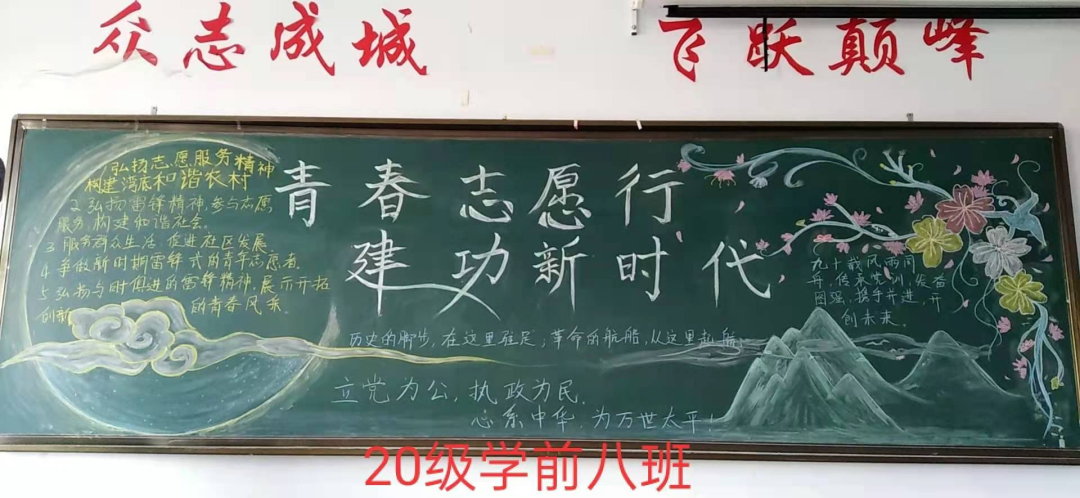 众志成城
飞跃巅峰
弘扬志愿服务精神
构建湾底和谐农村
2 弘扬雷锋精神,参与志愿
服务,构建和谐社会。
3 服务群众生活,促进社区发展
4 争做新时期雷锋式的青年志愿者
5 弘扬与时俱进的雷锋精神,展示开拓
创新的青春风采
青春志愿行,
建功新时代
九十载风雨同
舟,传承党训,发奋
图强,携手并进,开
创未来。
历史的脚步,在这里驻足;革命的航船,从这里起船
立党为公,执政为民,
心系中华,为万世太平!
20级学前八班